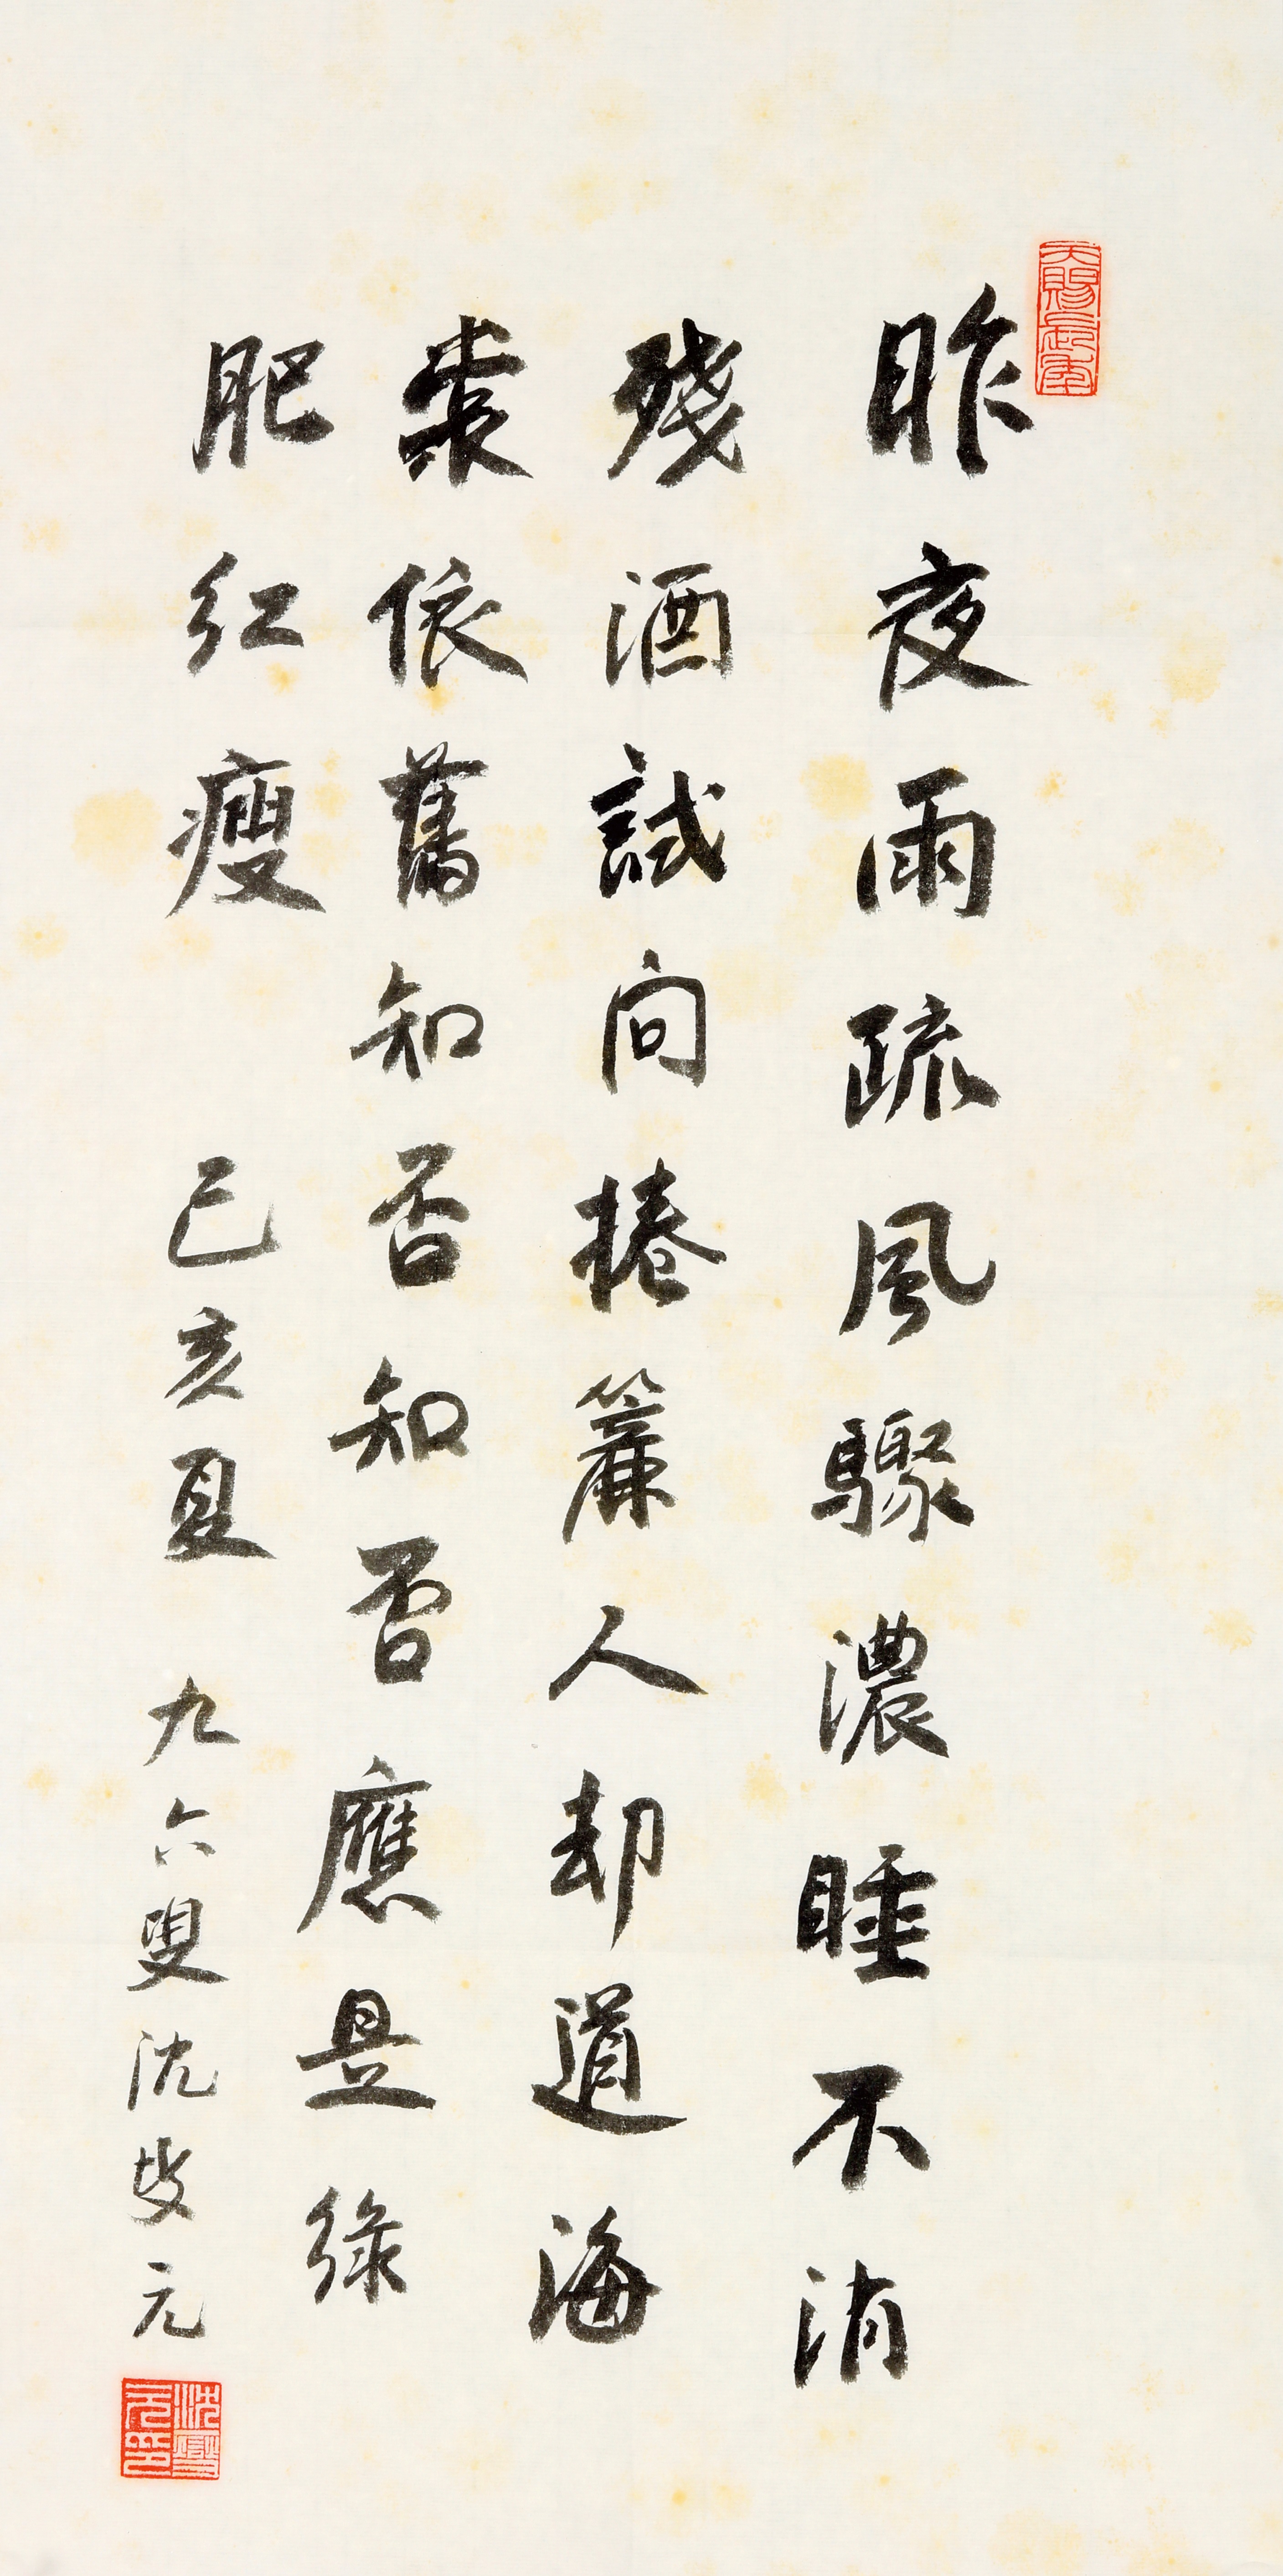 昨夜雨疏風驟濃睡不消
殘酒試問捲簾人却道海
棠依舊知否知否應是綠
肥红瘦 己亥夏 九六叟沈燮元
沈燮元印